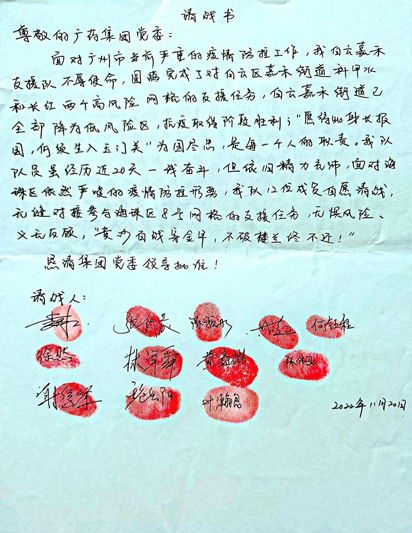 请战书
尊敬的广药集团党委：
面对广州市当前严重的疫情防控工作，我白云嘉禾
支援队不辱使命，圆满完成了对白云区嘉禾街道科甲水
和长红两个高风险网格的支援任务，白云嘉禾街道已
全部降为低风险区，抗疫取得阶段胜利；"愿得此身长报
国，何须生入玉门关"为国尽忠，是每一个人的职责。我队
队员虽经历近20天一线奋斗，但依旧精力充沛，面对海
珠区依然严峻的疫情防控形势，我队12位成员自愿请战，
无缝对接参与海珠区8号网格的支援任务，无惧风险、
义无反顾，"黄沙百战穿金甲，不破楼兰终不还！"
恳请集团党委领导批准！
请战人：
徐然
叶瀚恩
2022年11月20日